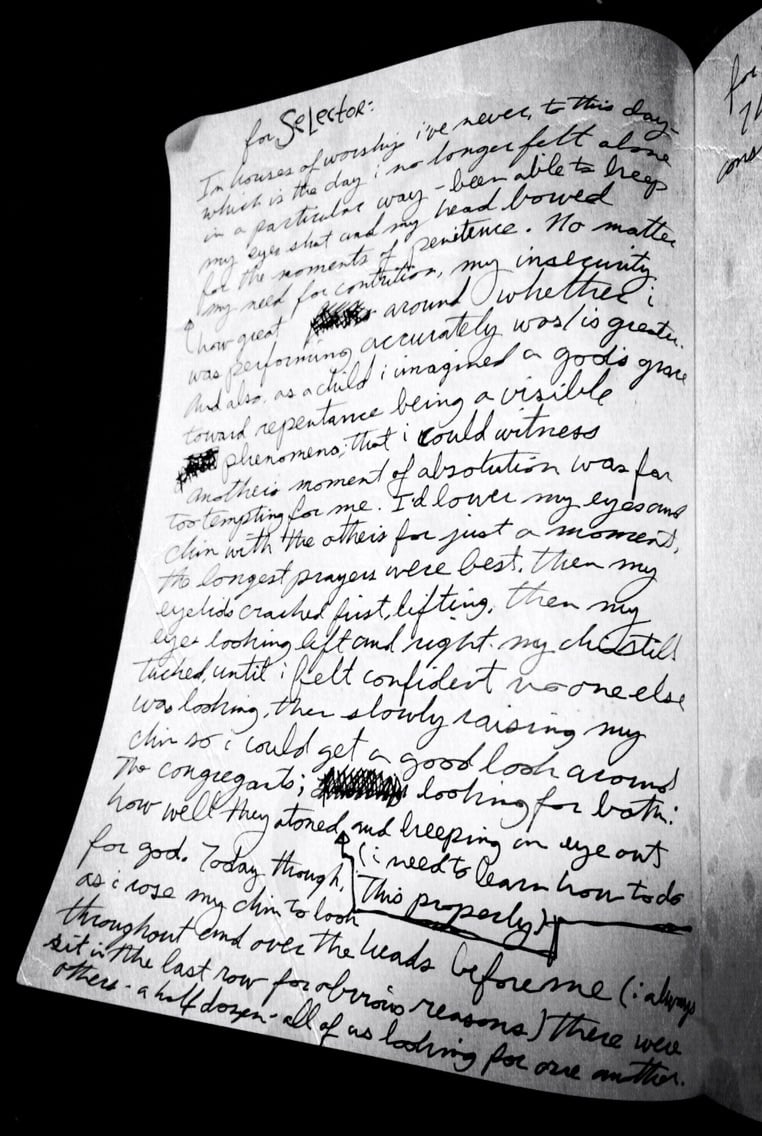 for Selector:
In houses of worship i've never, to this day -
which is the day i no longer felt alone
in a particular way - been able to keep
my eyes shut and my head bowed
for the moments of penitence. No matter
my need for contrition, my insecurity
(how great around whether i
was performing accurately was/is greater.
And also, as a child i imagined a god's grace
toward repentance being a visible
phenomena; that i could witness
another's moment of absolution was far
too tempting for me. I'd lower my eyes and
chin with the others for just a moment,
the longest prayers were best, then my
eyelids cracked first, lifting, then my
eyes looking left and right, my chin still
tucked, until i felt confident no one else
was looking, then slowly raising my
chin so i could get a good look around
the congregants; looking for both:
how well they atoned and keeping an eye out
(i need to learn how to do
for god. Today though,
this properly)
as i rose my chin to look
throughout and over the heads before me (i always
sit in the last row for obvious reasons) there were
others - a half dozen - all of us looking for one another.
for